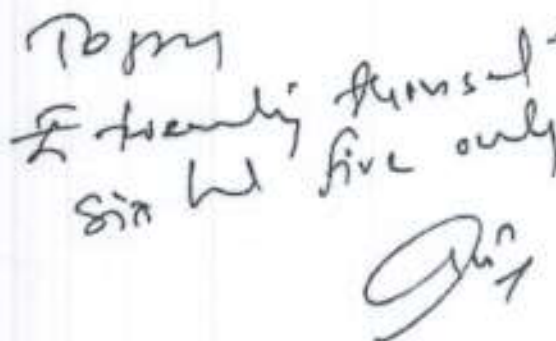 To pay
₹ twenty thousand
six hd five only